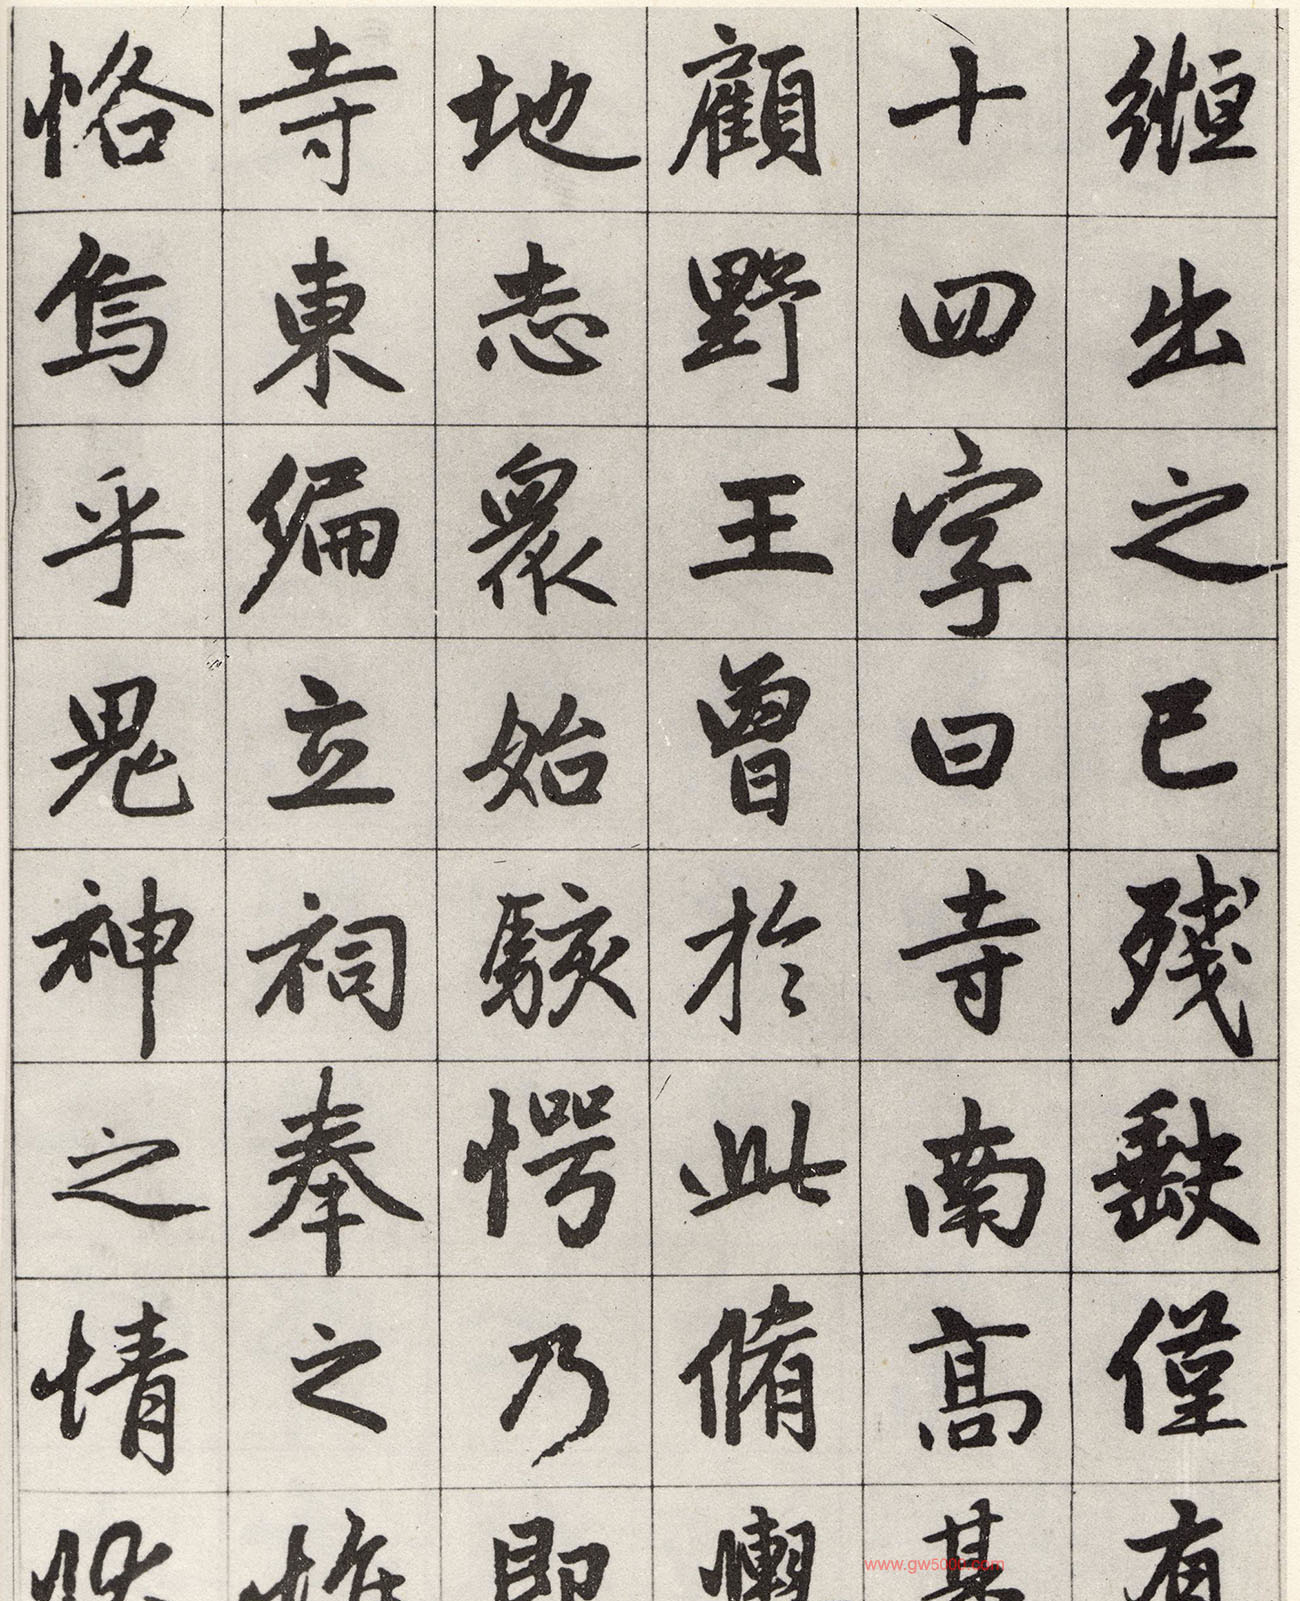 縆出之已殘缺僅有
十四字曰寺南髙基
顧野王曾於此脩
地志衆始駭愕乃即
寺東偏立祠奉之惟
恪焉乎鬼神之情狀
www.gw5000.com